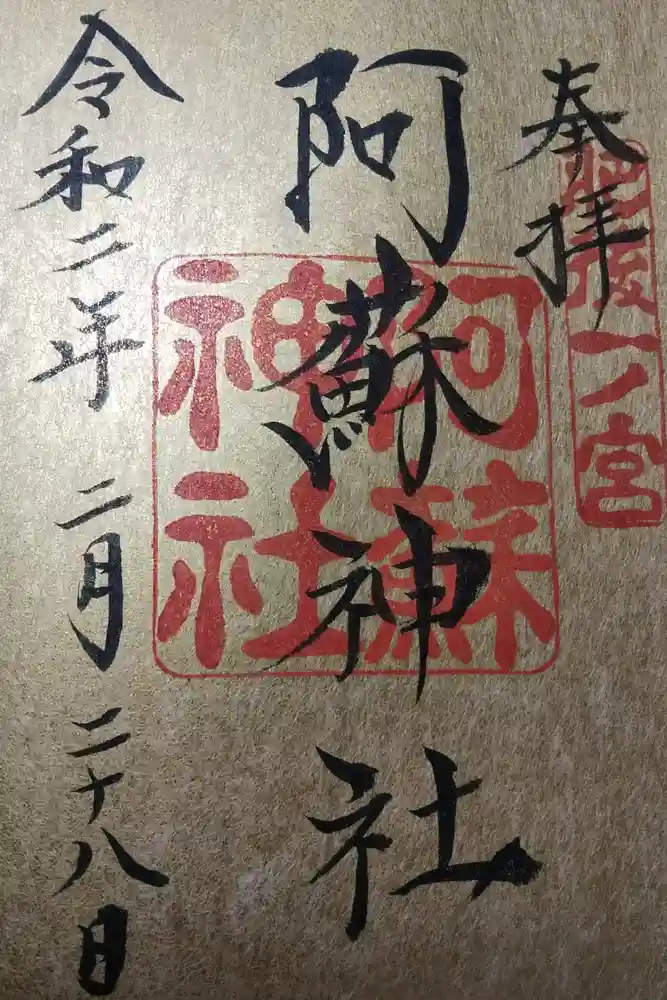 奉拝
肥後一ノ宮
阿蘇神社
阿蘇
神社
令和二年二月二十八日